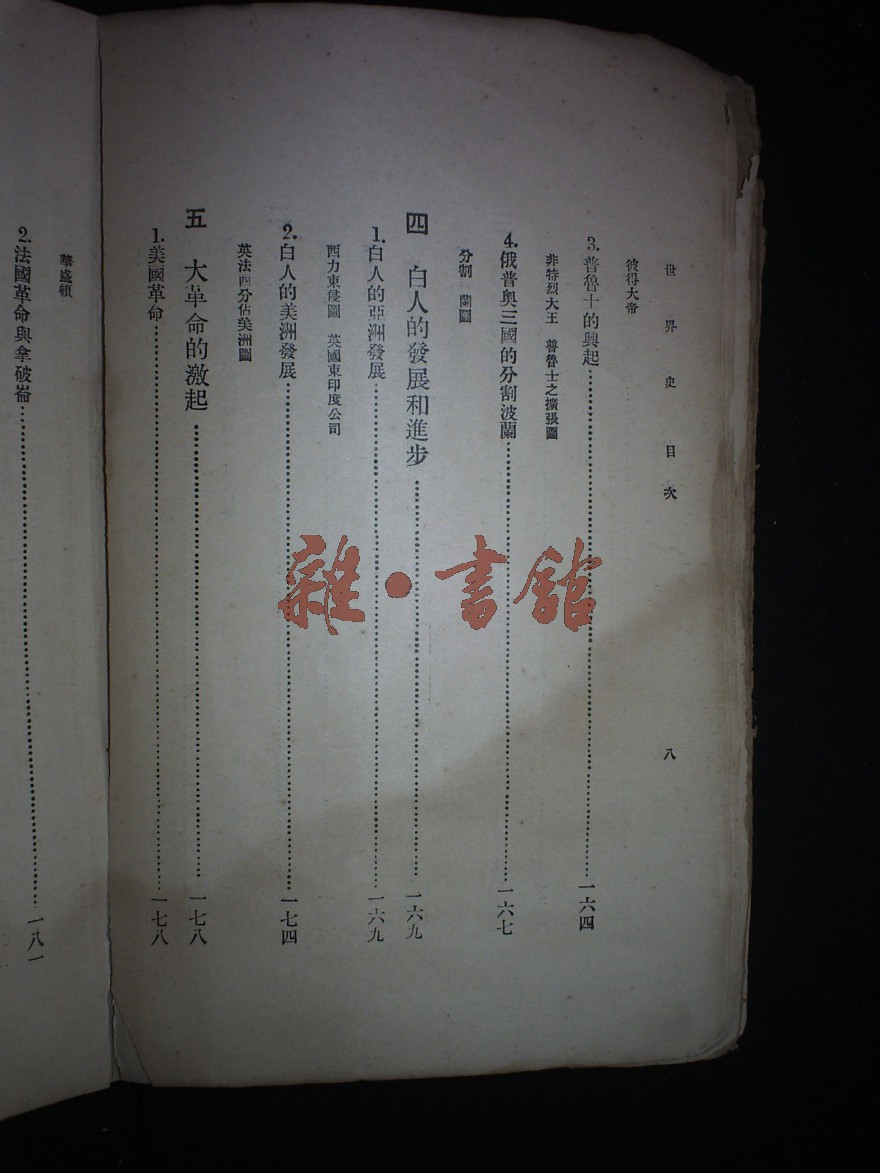 世界史目次 八
彼得大帝
3.普魯士的興起 一六四
菲特烈大王 普魯士之擴張圖
4.俄普奧三國的分割波蘭 一六七
分割 蘭圖
四 白人的發展和進步 一六九
1.白人的亞洲發展 一六九
西力東侵圖 英國東印度公司
2.白人的美洲發展 一七四
英法西分佔美洲圖
五 大革命的激起 一七八
1.美國革命 一七八
華盛頓
2.法國革命與拿破崙 一八一
雜·書館